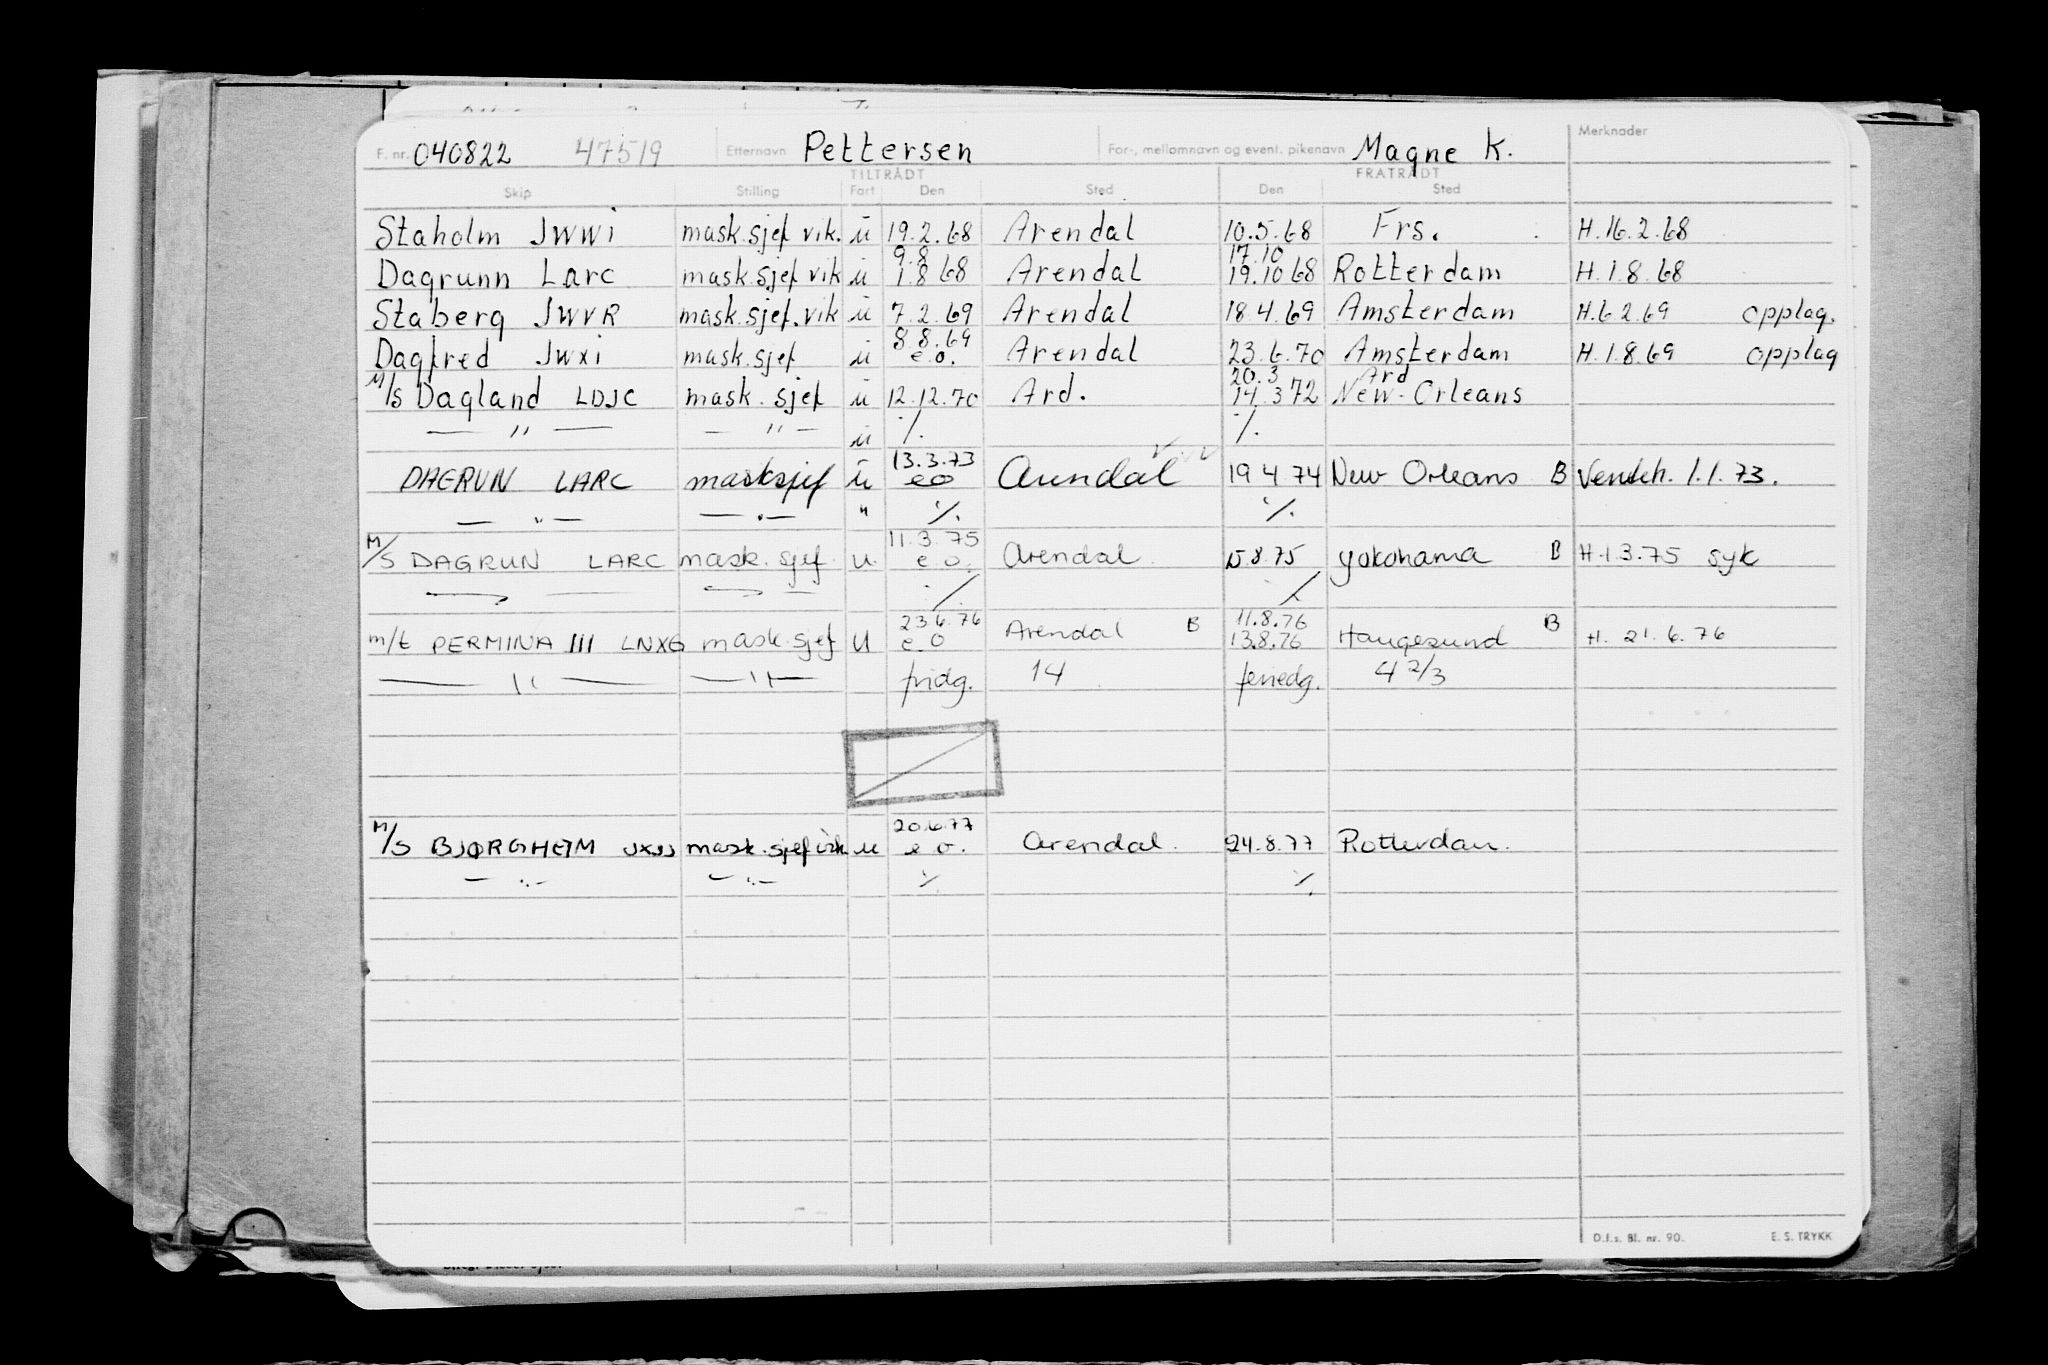 F. nr. 040822 47519 Etternavn Pettersen For-, mellomnavn og event. pikenavn Magne K. Merknader
TILTRÅDT FRATRÅDT
Skip Stilling Fart Den Sted Den Sted
Staholm JWWi mask.sjef vik. u 19.2.68 Arendal 10.5.68 Frs. H.16.2.68
9.8 17.10
Dagrunn Larc mask.sjef vik u 1.8.68 Arendal 19.10 68 Rotterdam H.1.8.68
Staberg JWVR mask.sjef.vik u 7.2.69 Arendal 18.4.69 Amsterdam H.6.2.69 opplag.
8.8.69
Dagfred JWXi mask.sjef u e.o. Arendal 23.6.70 Amsterdam H.1.8.69 opplag
20.3 Ard
M/S Dagland LDJC mask.sjef u 12.12.70 Ard. 14.3 72 New-Orleans
— " — — " — u ./. ./.
13.3.73
DAGRUN LARC masksjef u eo Arendal 19 4 74 New Orleans B Venteh. 1.1.73.
— " — — " — " ./. ./.
11.3.75
M/S DAGRUN LARC mask.sjef. u. e o. Arendal. 15.8.75 Yokohama B H.1.3.75 syk
./. ./.
23.6.76 11.8.76
m/t PERMINA III LNXG mask.sjef U e.O Arendal B 13.8.76 Haugesund B H. 21.6.76
— " — — " — fridg. 14 feriedg. 4 2/3
20.6.77
M/S BJØRGHEIM JXJJ mask.sjef vik u e o. Arendal. 24.8.77 Rotterdam.
— " — — " — ./. ./.
D.f.s. Bl. nr. 90. E. S. TRYKK